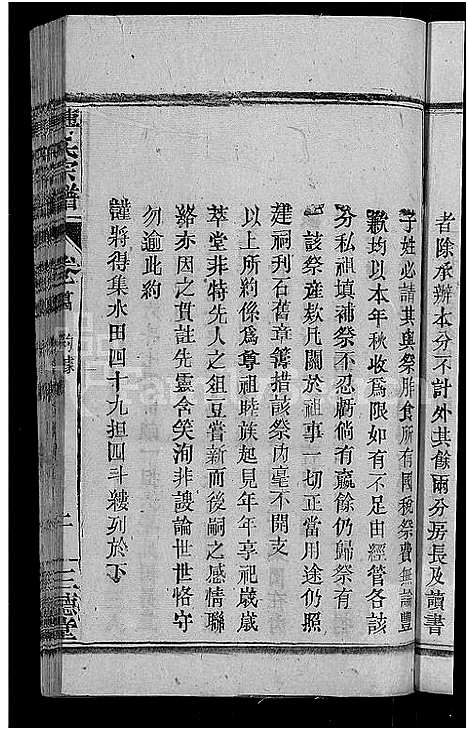 者除承辦本分不計外其餘兩分房長及讀書
子姓必請其與祭胙食所有國稅祭費無論豐
歉均以本年秋收爲限如有不足由經管各該
分私祖填補祭不忍虧倘有贏餘仍歸祭有
一該祭產欵凡關於祖事一切正當用途仍照
建祠刋石舊章籌措該祭內毫不開支
以上所約係爲尊祖睦族起見年年享祀歲歲
萃堂非特先人之俎豆嘗新而後嗣之感情聯
絡亦因之貫註先靈含笑洵非謏論世世恪守
勿逾此約
謹將得集水田四十九担四斗縷列於下
氏宗譜
卷
二
三德堂